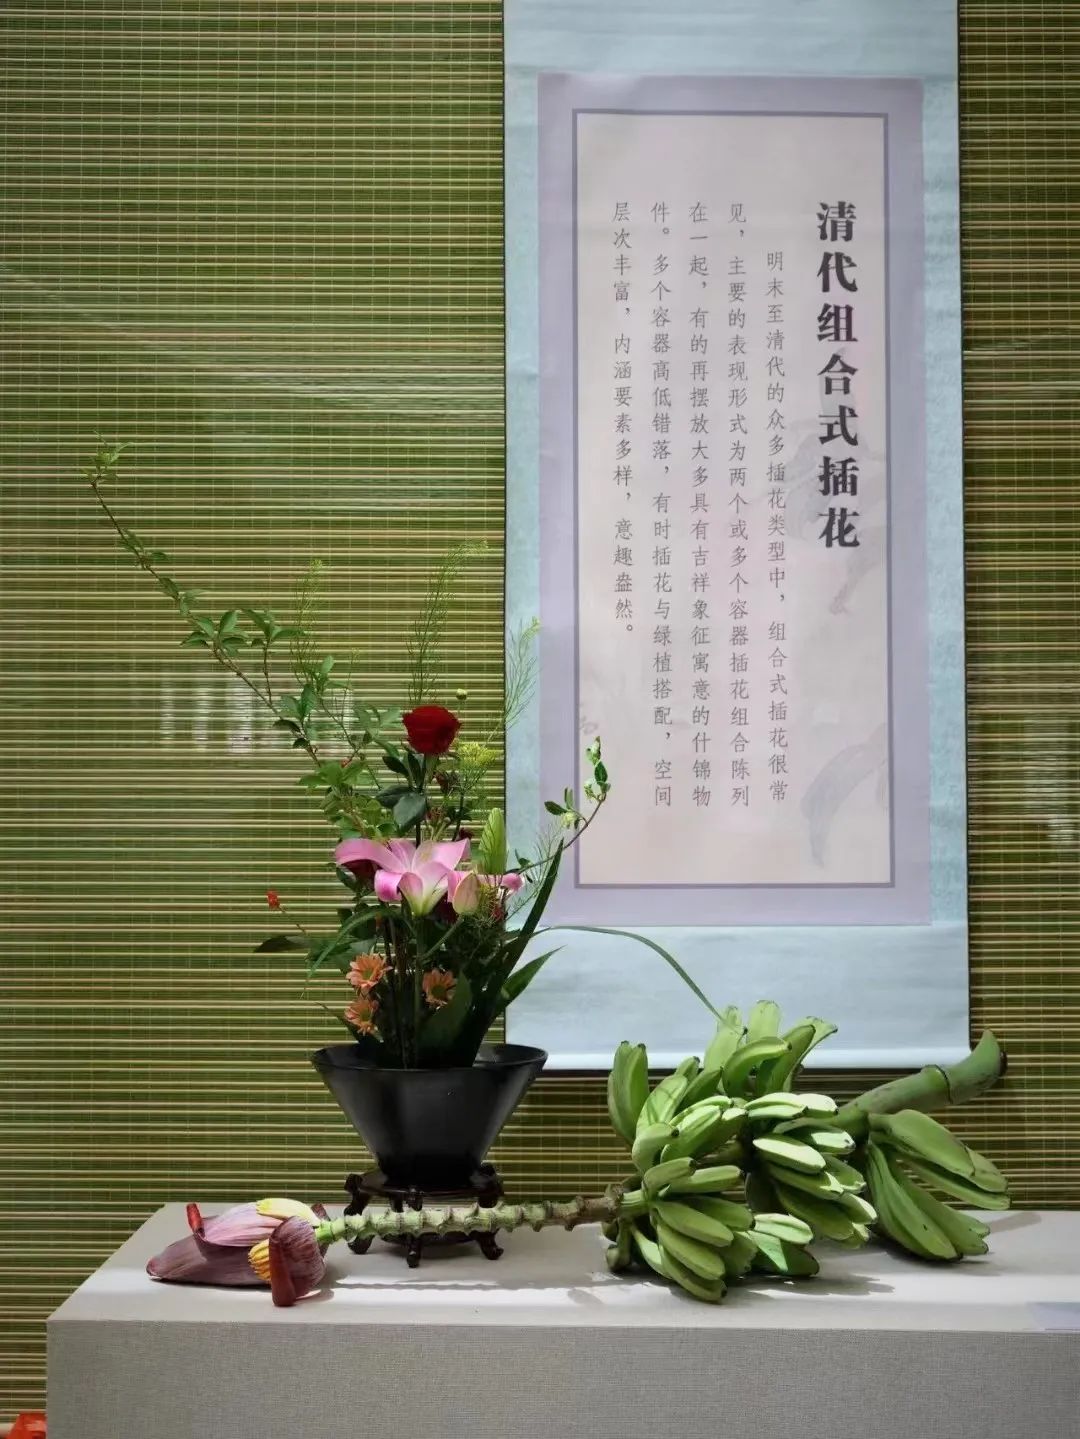 清代组合式插花
明末至清代的众多插花类型中，组合式插花很常
见，主要的表现形式为两个或多个容器插花组合陈列
在一起，有的再摆放大多具有吉祥象征寓意的什锦物
件。多个容器高低错落，有时插花与绿植搭配，空间
层次丰富，内涵要素多样，意趣盎然。